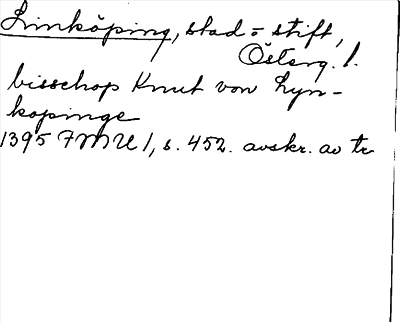 Linköping, stad o stift,
Österg. l.
bisschop Knut von Lyn-
kopinge
1395 FMU 1, s. 452. avskr. av tr